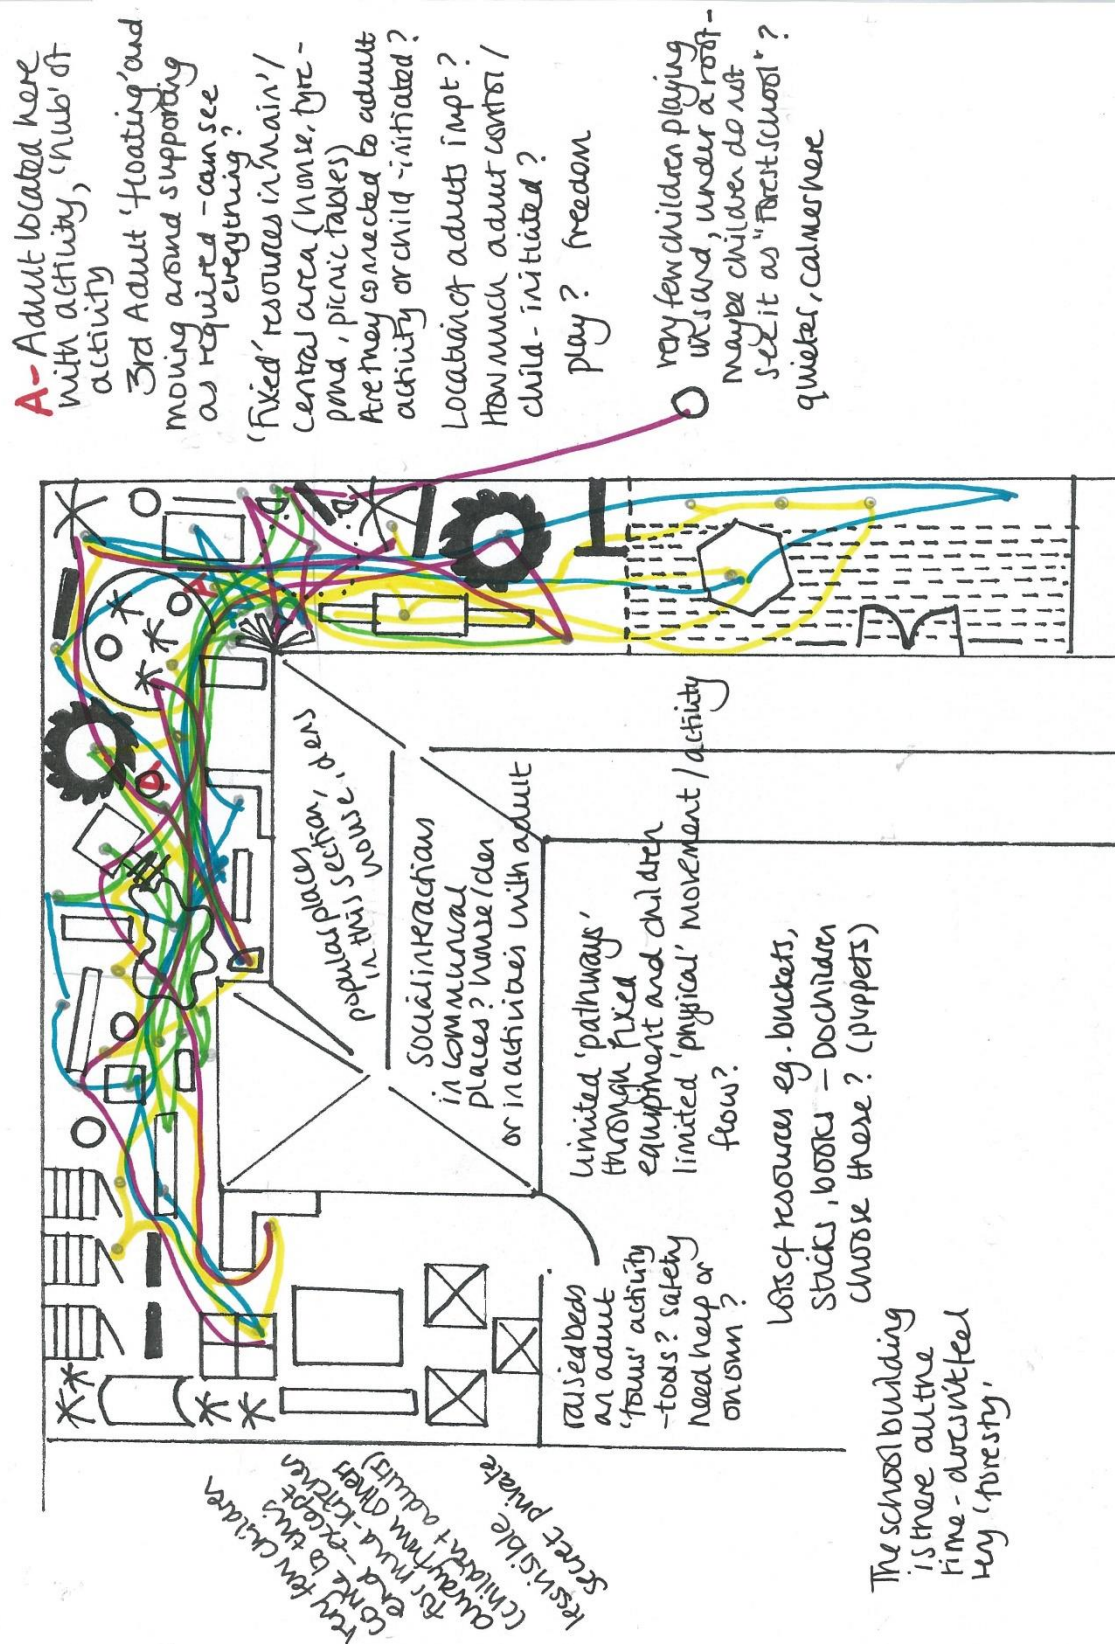 A- Adult located here
with activity, 'hub' of
activity
3rd Adult 'floating' and
moving around supporting
as required - can see
everything?
'Fixed' resources in 'main' /
central area (house, tyre -
pond, picnic tables)
Are they connected to adult
activity or child-initiated?
Location of adults impt?
How much adult control /
child-initiated?
play? freedom
very few children playing
in sand, under a roof -
maybe children do not
see it as "Forest school"?
quieter, calmer here
A
A
popular places,
in this section, dens
house
Social interactions
in communal
places? house/den
or in activities with adult
Limited 'pathways'
through fixed
equipment and children
limited 'physical' movement / activity
flow?
raised beds
an adult
'focus' activity
- tools? safety
need help or
on own?
Lots of resources eg. buckets,
Sticks, books - Do children
choose these? (puppets)
The school building
is there all the
time - doesn't feel
very 'foresty'.
very few children
come to this
end - except
for mud-kitchen
away from others
(children + adults)
less visible
secret, private